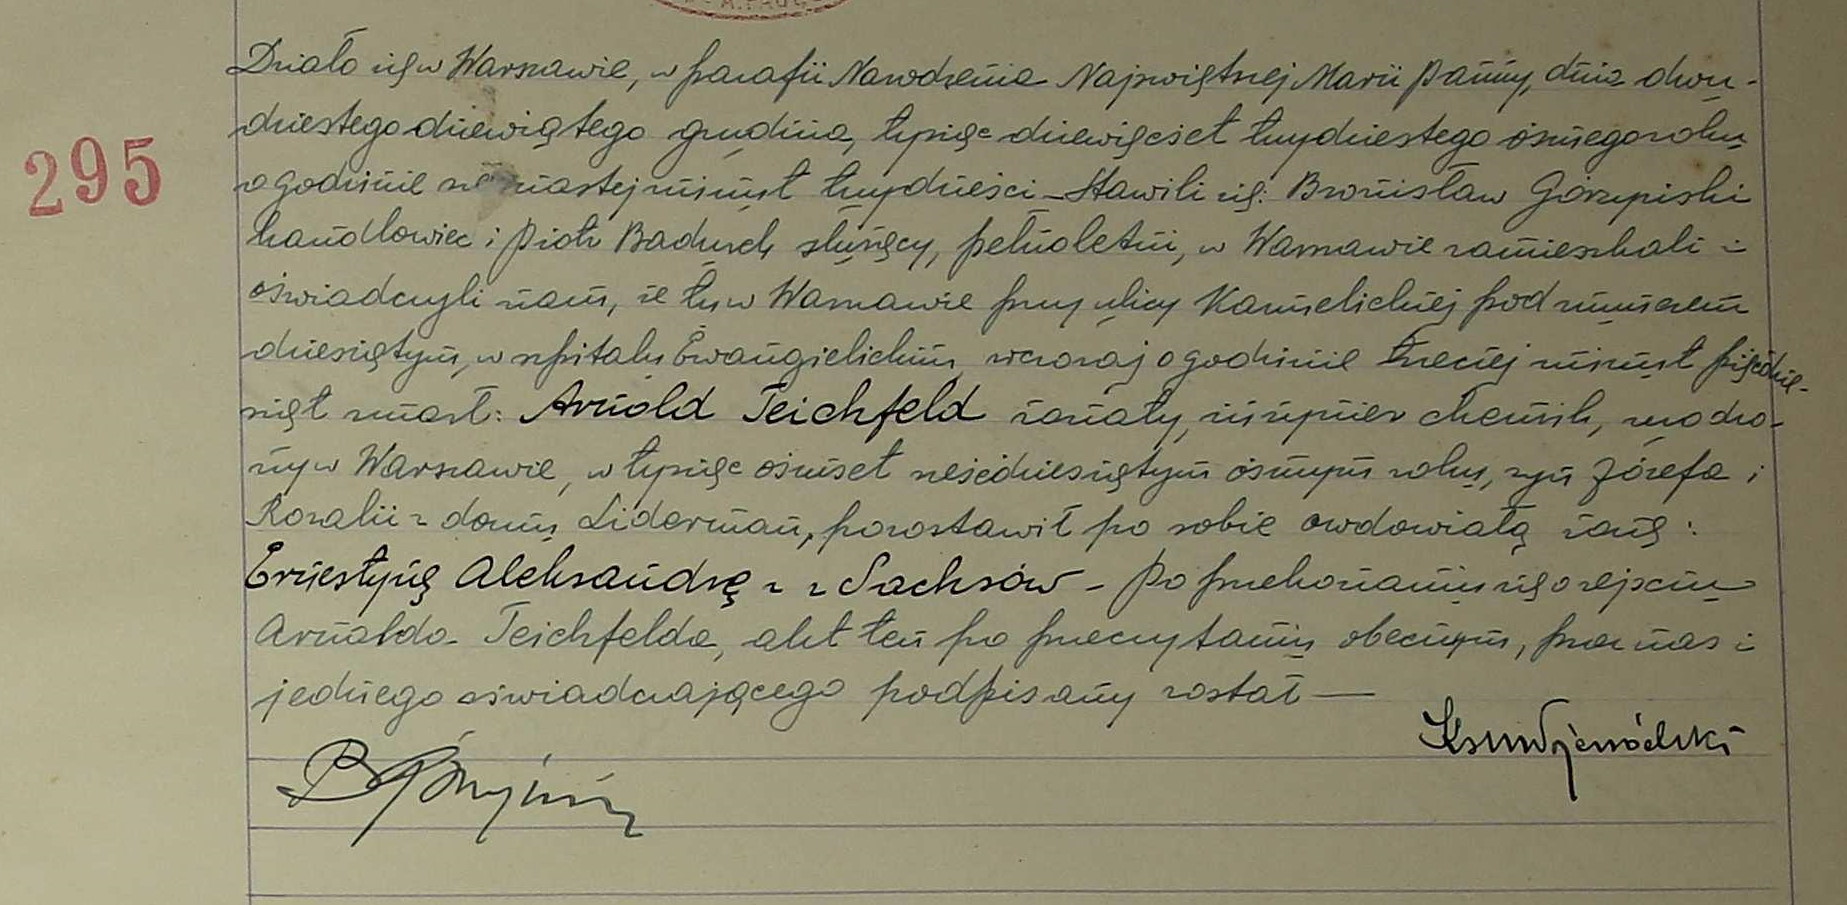 295
Działo się w Warszawie, w parafii Narodzenia Najświętszej Marii Panny, dnia dwu-
dziestego dziewiątego grudnia, tysiąc dziewięćset trzydziestego ósmego roku
o godzinie minut trzydzieści – Stawili się: Bronisław Górzyński
handlowiec i Piotr służący, pełnoletni, w Warszawie zamieszkali i
oświadczyli nam, że tu w Warszawie przy ulicy Karmelickiej pod numerem
dziesiątym, w szpitalu Ewangielickim, wczoraj o godzinie trzeciej minut pięćdzie-
siąt zmarł: Arnold Teichfeld żonaty, inżynier chemik, urodzo-
ny w Warszawie, w tysiąc ośmset sześćdziesiątym ósmym roku, syn Józefa i
Rozalii z domu Liderman, pozostawił po sobie owdowiałą żonę:
Ernestynę Aleksandrę z Sachsów – Po przekonaniu się o zejściu
Arnolda Teichfelda, akt ten po przeczytaniu obecnym, przez nas i
jednego oświadczającego podpisany został —